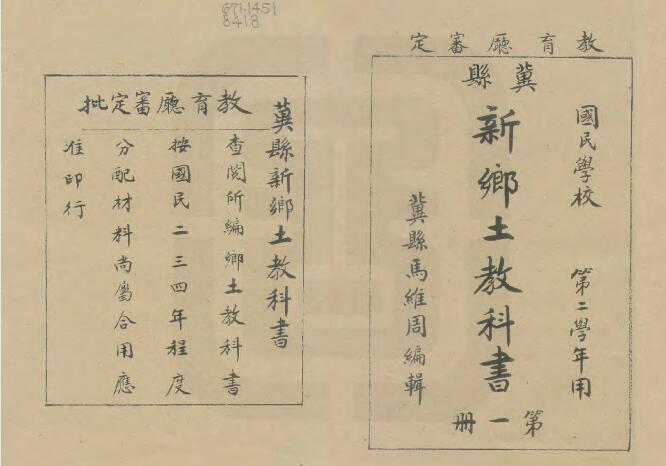 671.1451
8418
教育廳審定
冀縣
國民學校　第二學年用
新鄉土教科書
冀縣馬維周編輯
第一冊
冀縣新鄉土教科書
教育廳審定批
查閱所編鄉土教科書
按國民二三四年程度
分配材料尚屬合用應
准印行